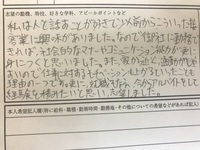 志望の動機、特技、好きな学科、アピールポイントなど
私は人と話すことが好きで以前からこういった接
客業に興味がありました。なので御社に勤務で
きれば、社会的なマナーやコミュニケーション能力が更に
身につくと思いました。また、家から近く、通勤がしや
すいので仕事に対するモチベーションも上がるといったことも
理由の一つであります。
就職するなら、今からアルバイトをして
社会経験を積みたいと思い、志望しました。
本人希望記入欄(特に給料・職種・勤務時間・勤務地・その他についての希望などがあれば記入)